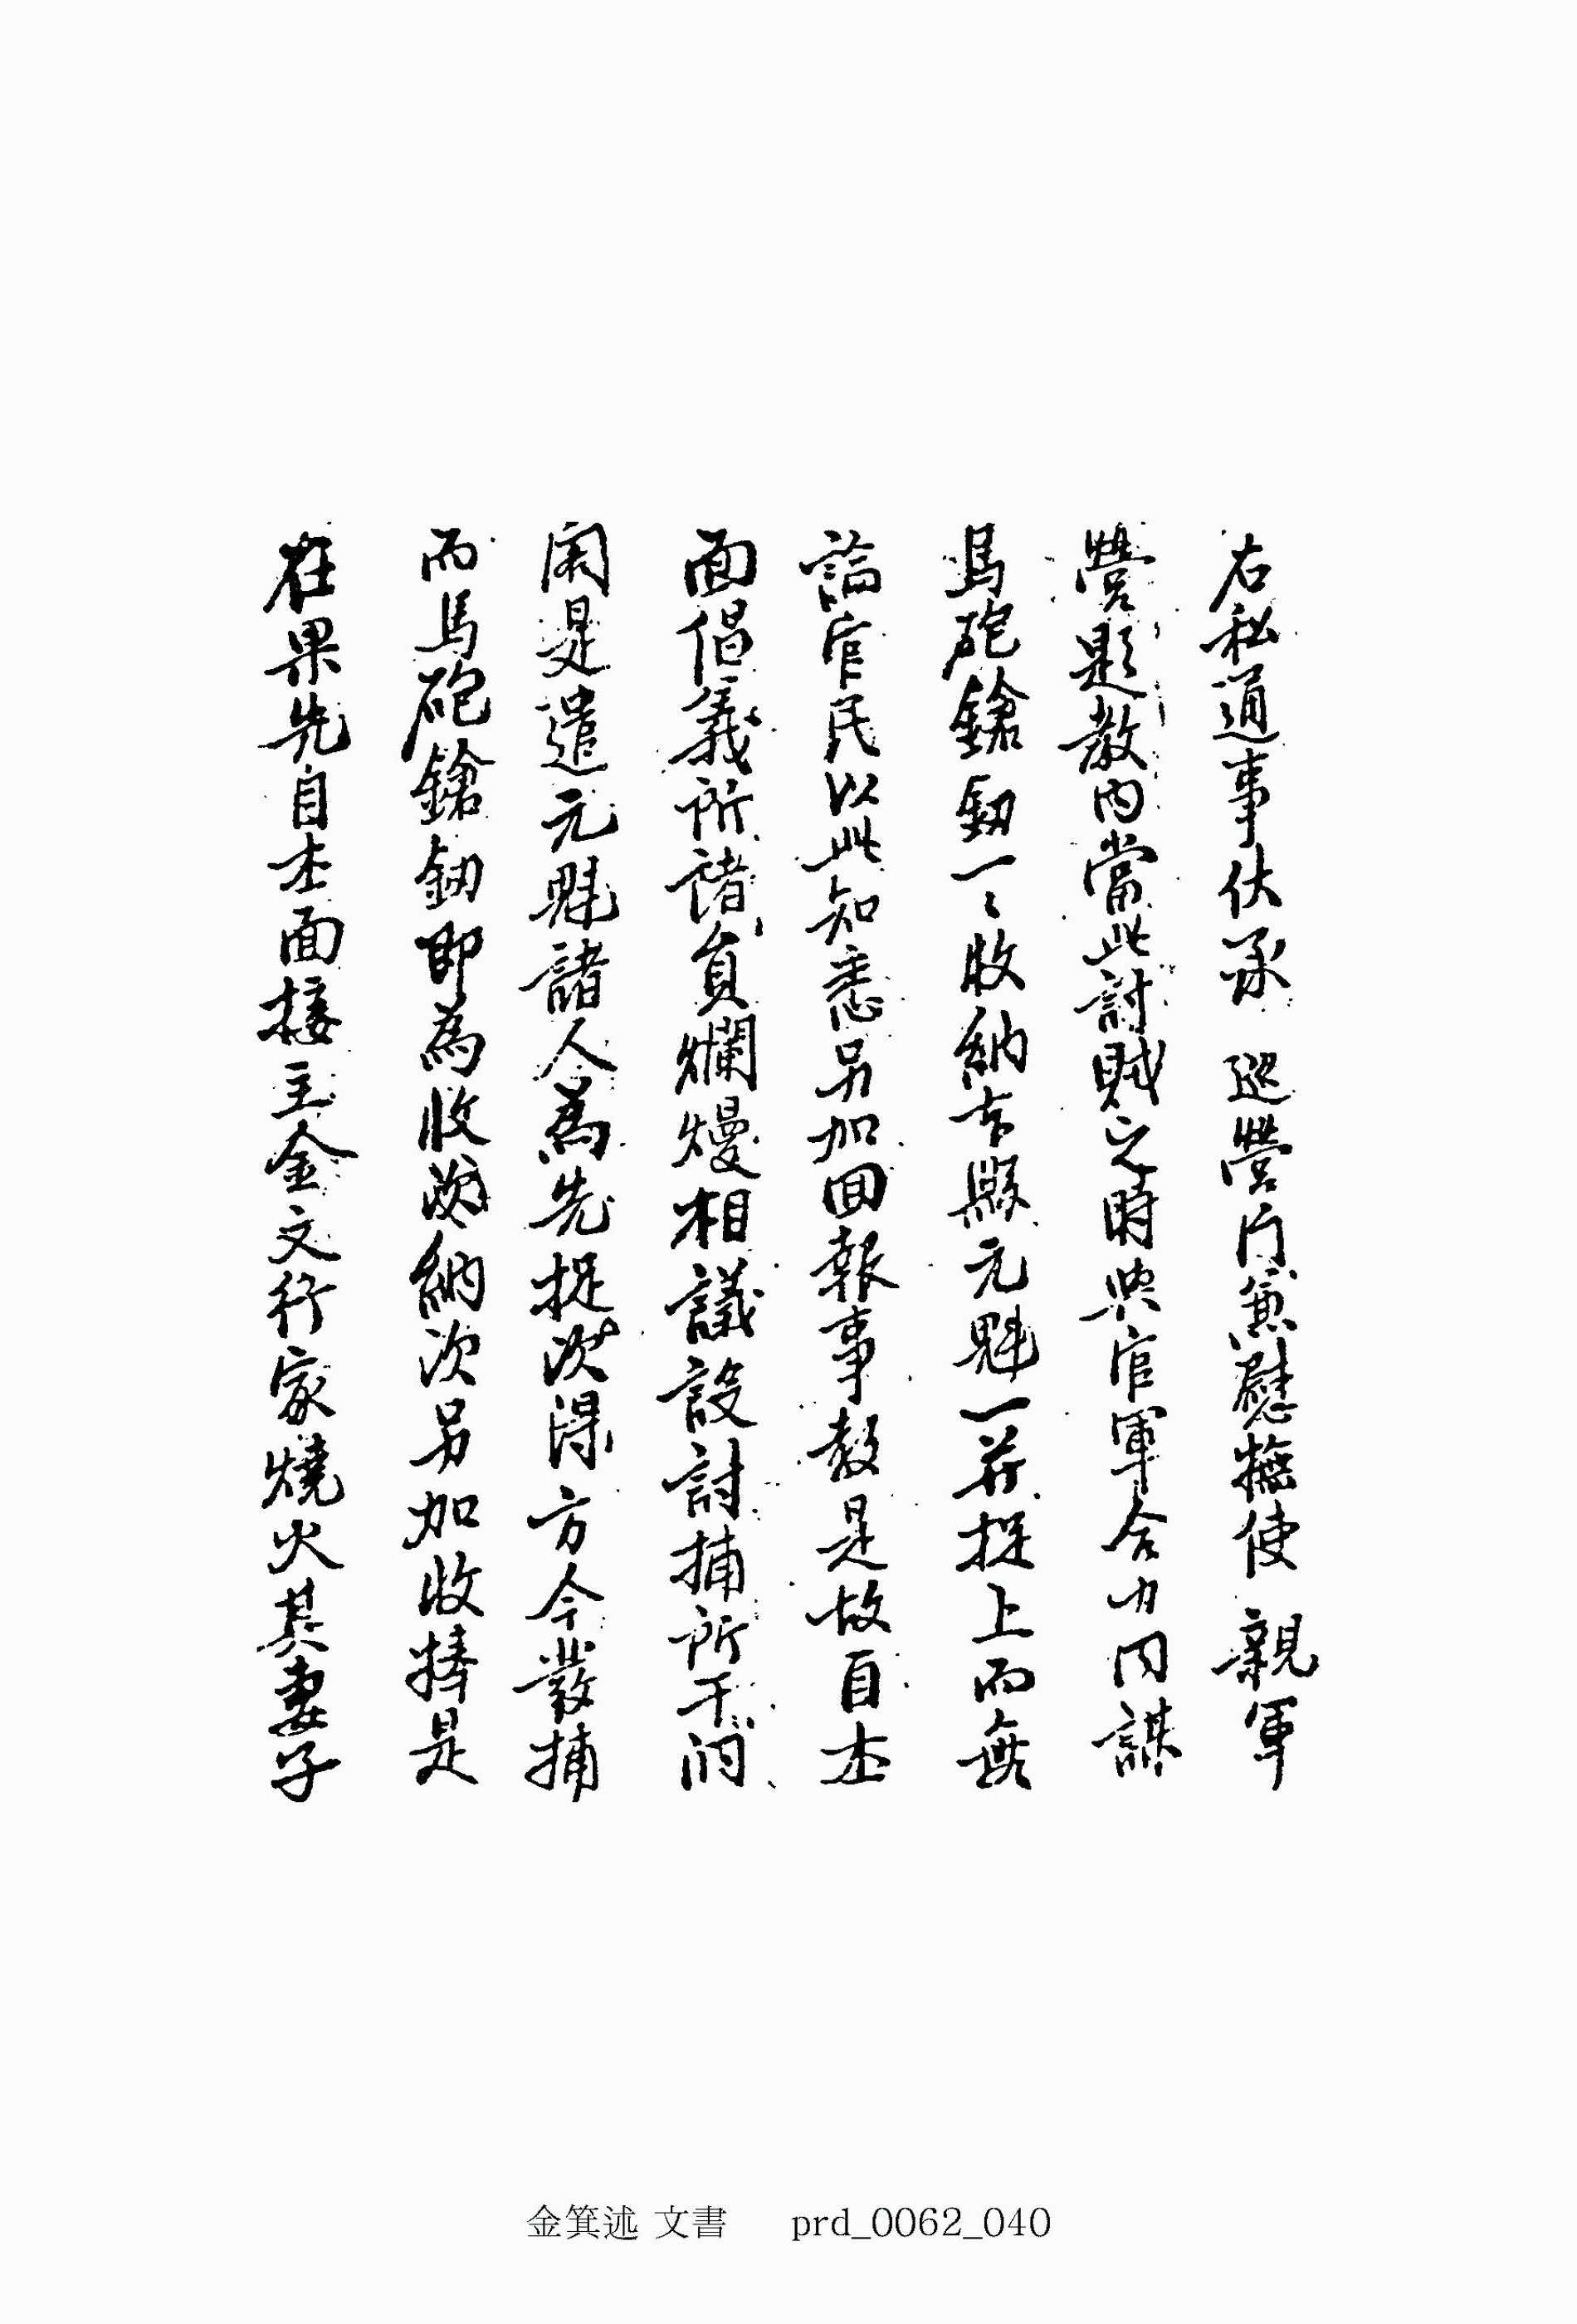 右私通事伏承 巡營門兼慰撫使 親軍
營題教內當此討賊之時與官軍合力同謀
馬砲鎗釰一一收納本縣元魁一并捉上而無
論官民以此知悉另加回報事教是故自本
面倡義所諸員爛熳相議設討捕所于
是遣元魁諸人爲先捉次得方今發捕
而馬砲鎗釰卽爲收納次另加收捧是
在果先自本面接主金文行家燒火其妻子
金箕述 文書 prd_0062_040